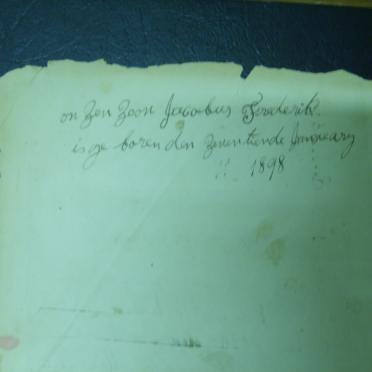 on zen zoon Jacobus Frederik.
is ge boren den zeven tiende Janueary
1898